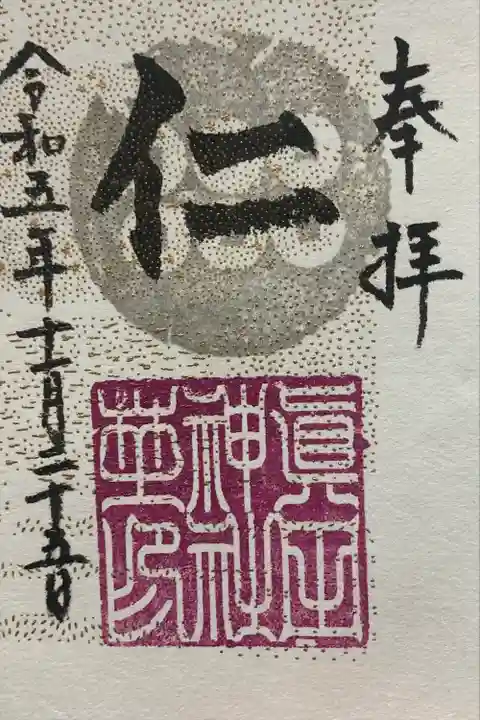 奉拝
仁
令和五年十二月二十五日
眞
神社
印